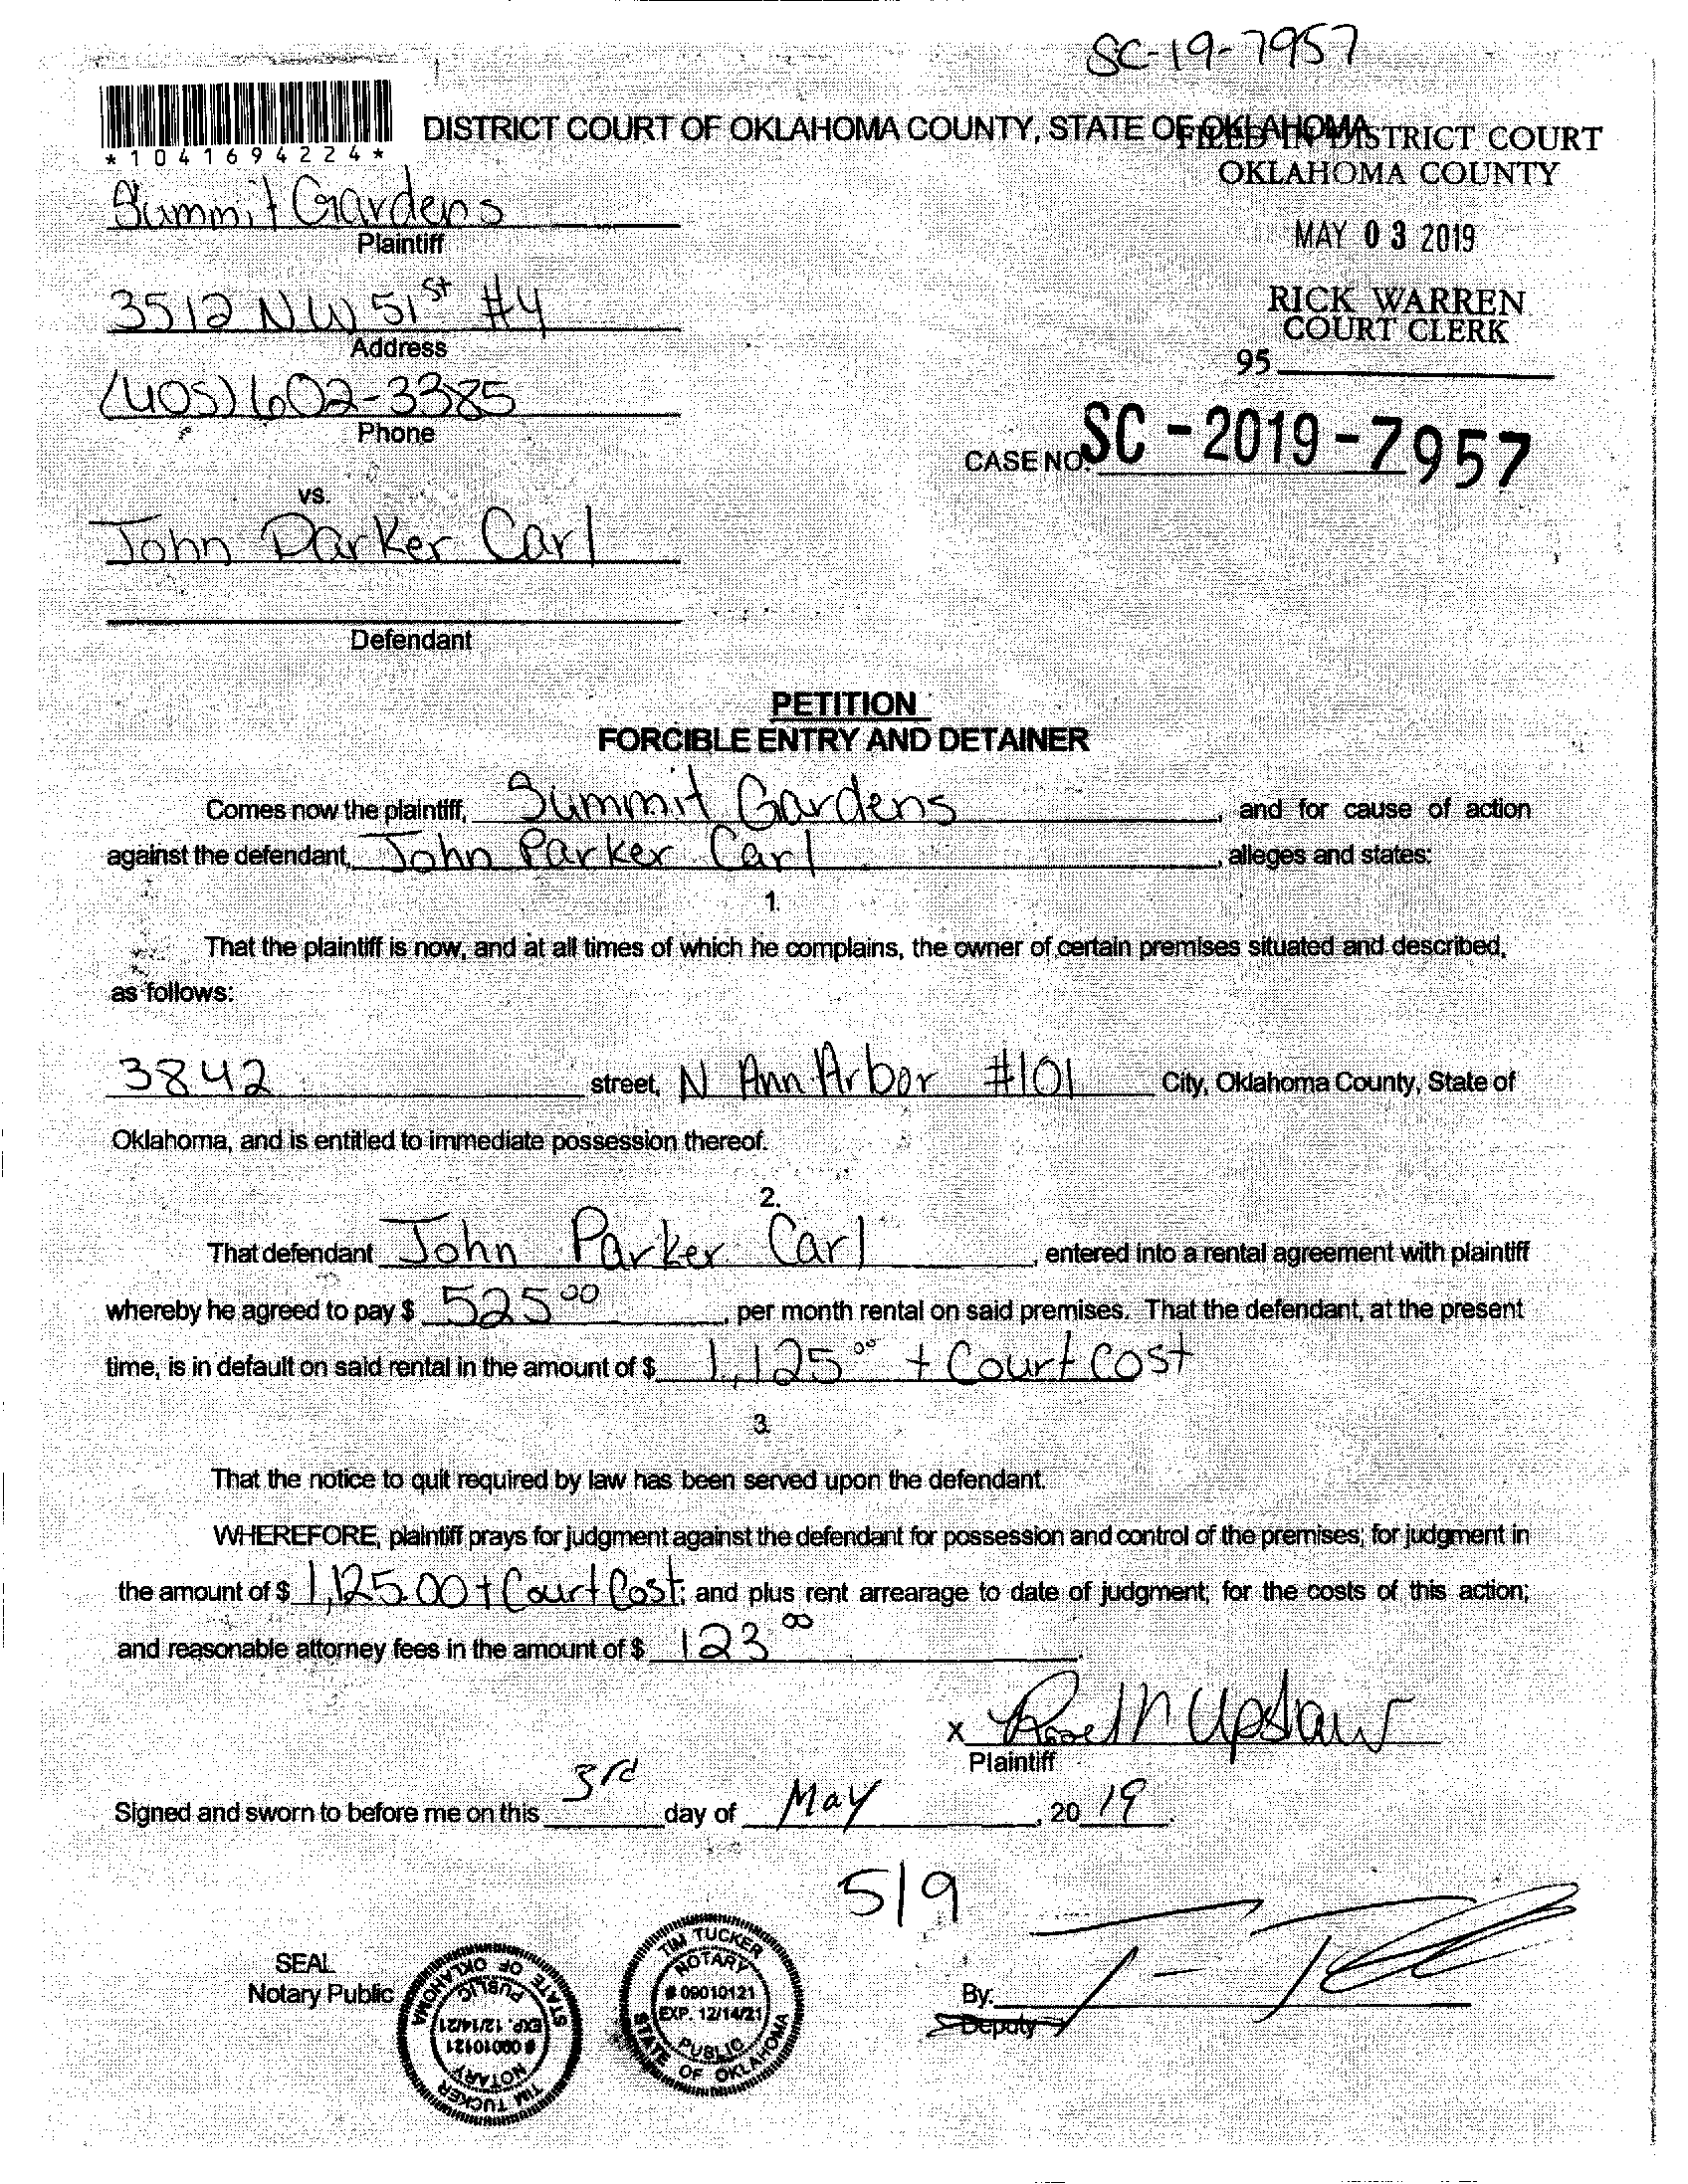 SC-19-7957
*1041694224*
DISTRICT COURT OF OKLAHOMA COUNTY, STATE OF OKLAHOMA
FILED IN DISTRICT COURT
OKLAHOMA COUNTY
Summit Gardens
Plaintiff
MAY 03 2019
3512 NW 51st #4
Address
RICK WARREN
COURT CLERK
95
(405) 602-3385
Phone
CASE NO. SC-2019-7957
vs.
John Parker Carl
Defendant
PETITION
FORCIBLE ENTRY AND DETAINER
Comes now the plaintiff, Summit Gardens, and for cause of action
against the defendant, John Parker Carl, alleges and states:
1.
That the plaintiff is now, and at all times of which he complains, the owner of certain premises situated and described,
as follows:
3842 street, N Ann Arbor #101 City, Oklahoma County, State of
Oklahoma, and is entitled to immediate possession thereof.
2.
That defendant John Parker Carl, entered into a rental agreement with plaintiff
whereby he agreed to pay $ 525.00, per month rental on said premises. That the defendant, at the present
time, is in default on said rental in the amount of $ 1,125.00 + Court Cost
3.
That the notice to quit required by law has been served upon the defendant.
WHEREFORE, plaintiff prays for judgment against the defendant for possession and control of the premises; for judgment in
the amount of $ 1,125.00 + Court Cost; and plus rent arrearage to date of judgment; for the costs of this action;
and reasonable attorney fees in the amount of $ 123.00.
x Upshaw
Plaintiff
Signed and sworn to before me on this 3rd day of May, 2019.
5/9
SEAL
Notary Public
TIM TUCKER
NOTARY
# 09010121
EXP. 12/14/21
PUBLIC
STATE OF OKLAHOMA
TIM TUCKER
NOTARY
# 09010121
EXP. 12/14/21
PUBLIC
STATE OF OKLAHOMA
By:
Deputy